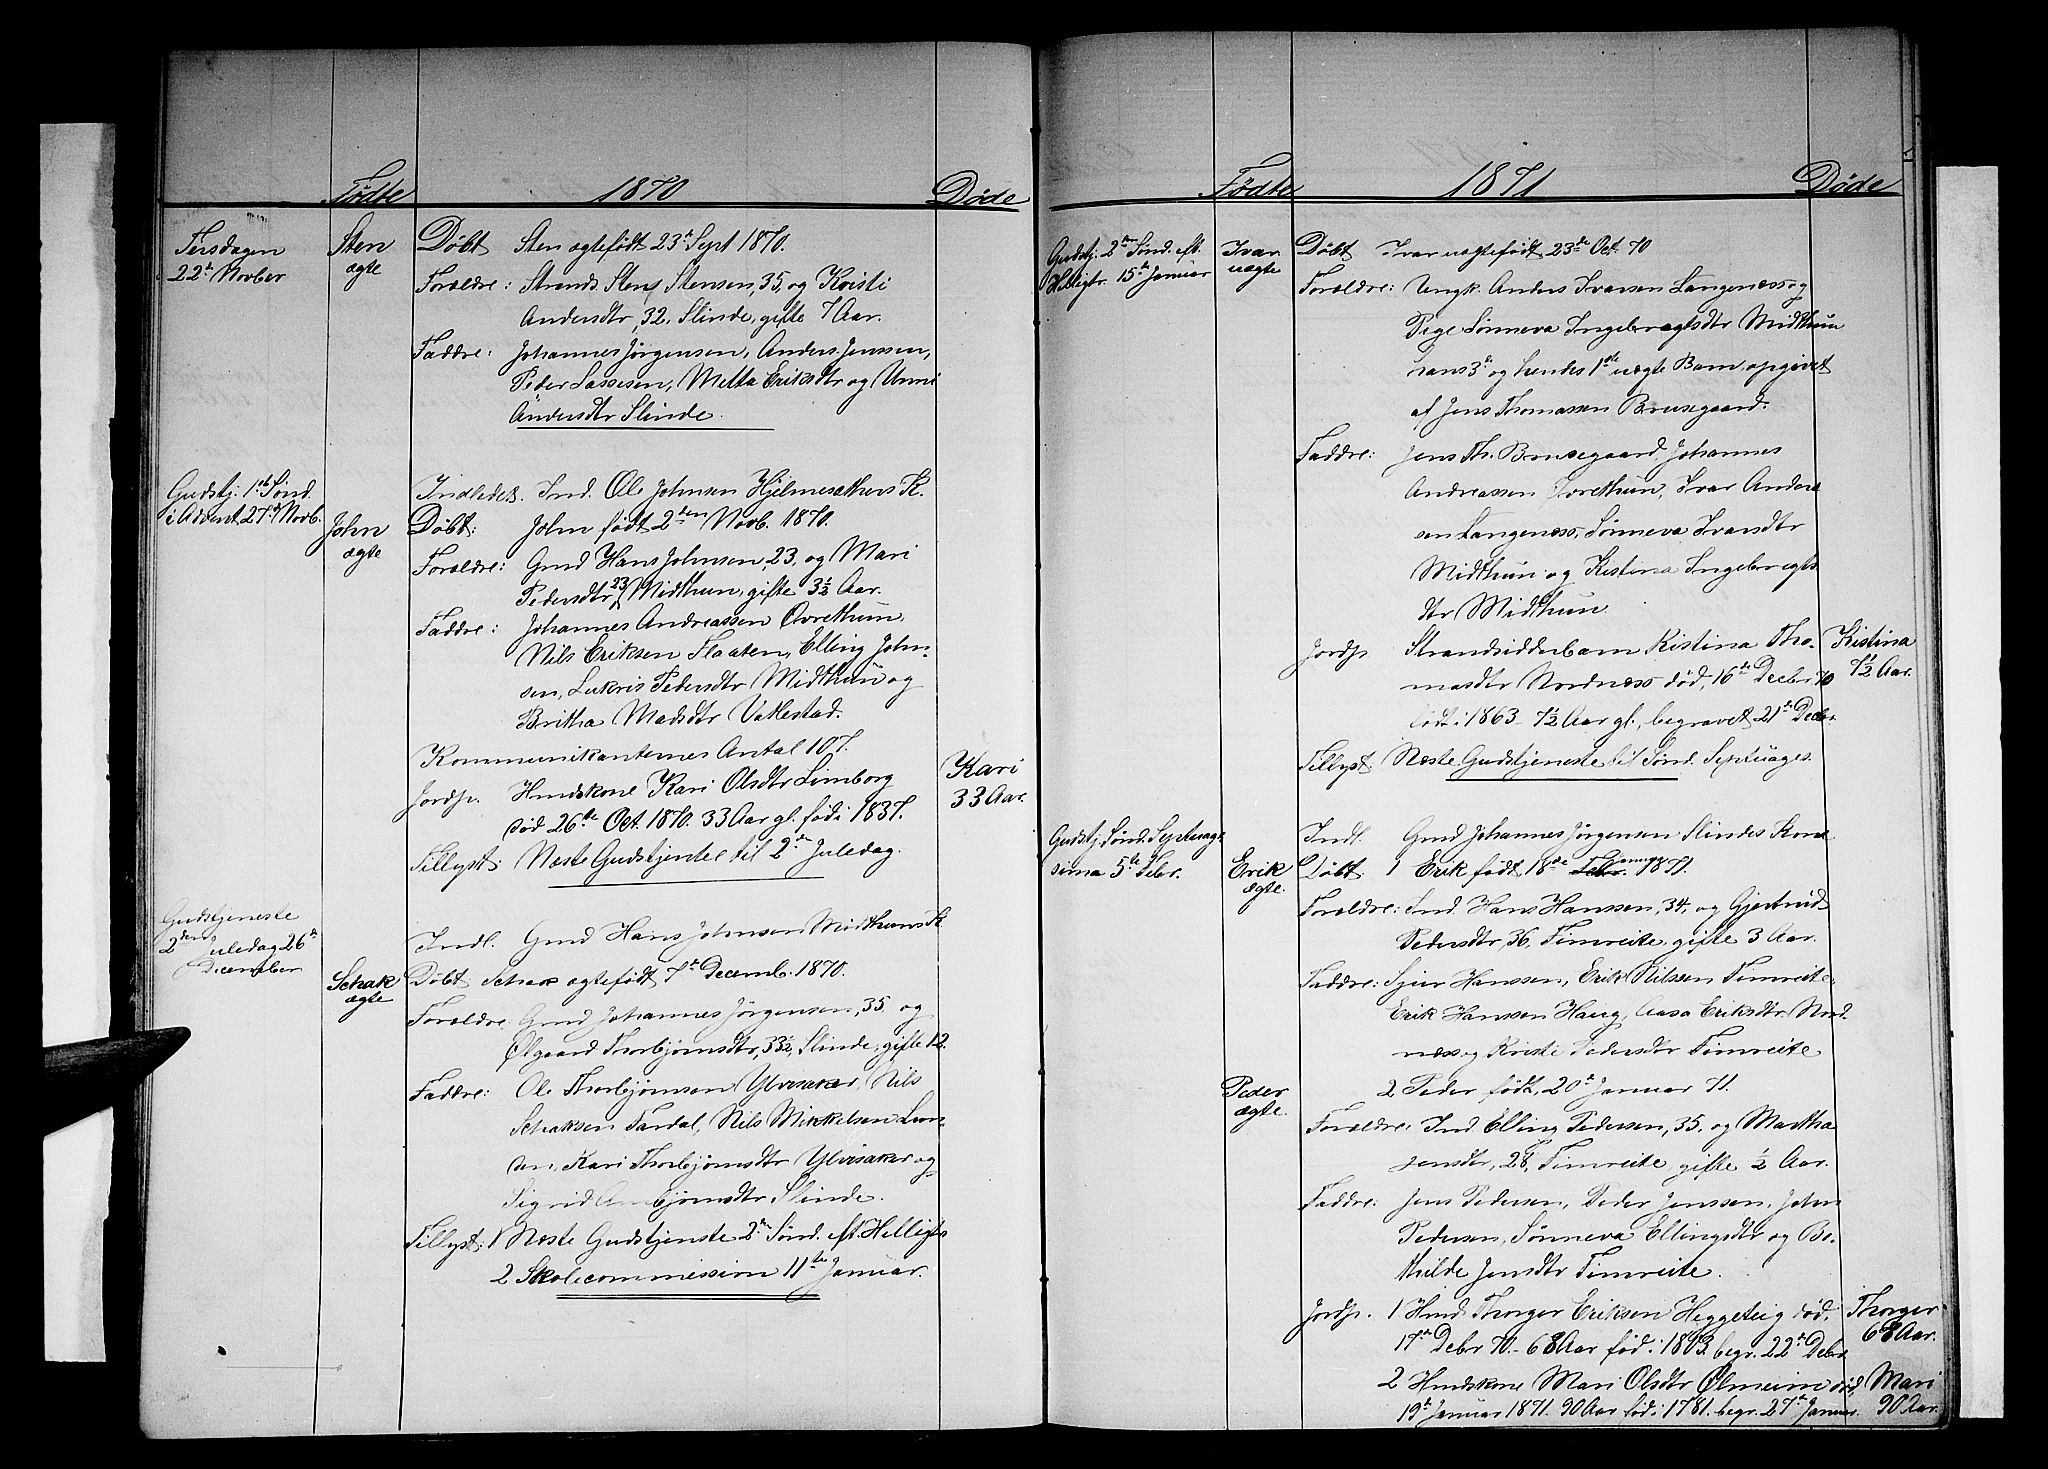 Fødte 1870 Døde
Tirsdagen
22de Novber
Sten
ægte
Døbt Sten ægtefødt 23de Sept 1870.
Forældre: Strands. Sten Stensen, 35, og Kristi
Andersdtr, 32, Slinde, gifte 7 Aar.
Faddre: Johannes Jörgensen, Anders Jenssen,
Peder Lassesen, Metta Eriksdtr og Unni
Andersdtr Slinde.
Gudstj. 1ste Sønd.
i Advent 27de Novb.
John
ægte
Indledet. Ind. Ole Johnsen Hjelmesæthers K.
Døbt: John født 2den Novb. 1870.
Forældre: Gmd Hans Johnsen, 23, og Mari
Pedersdtr 23, Midthun, gifte 3½ Aar.
Faddre: Johannes Andreassen Ovrethun,
Nils Eriksen Flaaten, Elling John-
sen, Lukris Pedersdtr Midthun og
Britha Madsdtr Vallestad.
Kommunikanternes Antal 107.
Jordp. Hmdskone Kari Olsdtr Limborg
død 26de Oct. 1870. 33 Aar gl. fød i 1837.
Kari
33 Aar
Tillyst: Næste Gudstjenste til 2den Juledag.
Gudstjeneste
2den Juledag 26de
December
Schak
ægte
Indl. Gmd Hans Johnsen Midthuns K
Døbt Schak ægtefødt 7de Decemb. 1870.
Forældre Gmd Johannes Jørgensen, 35 og
Ølgaard Thorbjörnsdtr, 33½, Slinde, gifte 12.
Faddre: Ole Thorbjörnsen Ylvisaker, Nils
Schaksen Fardal, Nils Mikkelsen Lun-
den, Kari Thorbjörnsdtr Ylvisaker og
Sigrid Arnbjörnsdtr Slinde.
Tillyst: 1 Næste Gudstjenste 2den Sønd. eft. Helligtr
2 Skolecommission 11te Januar.
Fødte 1871 Døde
Gudstj. 2den Sønd. eft.
Helligtr. 15de Januar
Ivar
uægte
Døbt Ivar uægtefødt 23de Oct. 70
Forældre: Ungk. Anders Ivarsen Langenæss og
Pige Sønneva Ingebregtsdtr Midthun
hans 3de og hendes 1ste uægte Barn, opgivet
af Jens Thomassen Brusegaard.
Faddre: Jens Th. Brusegaard, Johannes
Andreassen Ovrethun, Ivar Anders
sen Langenæss, Sønneva Ivarsdtr
Midthun og Kistina Ingebregts
dtr Midthun
Jordp. Strandsidderbarn Kistina Tho-
masdtr Nordnæss død, 16de Decbr 70
født i 1863 7½ Aar gl., begravet 21de Decbr.
Kistina
7½ Aar.
Tillyst: Næste Gudstjeneste til Sønd. Septuages.
Gudstj. Sønd. Septuage-
sima 5te Febr.
Indl. Gmd Johannes Jørgensen Slindes Kone
Erik
ægte.
Døbt 1 Erik født 18de Febr. Januar 1871.
Forældre: Ind. Hans Hanssen, 34, og Gjertrud
Pedersdtr, 36, Timreite, gifte 3 Aar.
Faddre: Sjur Hanssen, Erik Nilssen Timreite
Erik Hanssen Haug, Aasa Eriksdtr. Nord-
næss og Kristi Pedersdtr Timreite
Peder
ægte.
2 Peder født, 20de Januar 71.
Forældre: Ind. Elling Pedersen, 35, og Martha
Jensdtr, 28, Timreite, gifte ½ Aar.
Faddre: Jens Pedersen, Peder Jenssen, John
Pedersen, Sønneva Ellingsdtr og Bo-
thilde Jensdtr Timreite.
Jordp. 1 Hmd. Thorger Eriksen Heggeteig død,
17de Debr 70 - 68 Aar fød i 1803. begr. 22de Debr
Thorger
68 Aar.
2 Hmdskone Mari Olsdtr Ølmeim død,
19de Januar 1871. 90 Aar fød i 1781. begr. 27de Januar.
Mari
90 Aar.